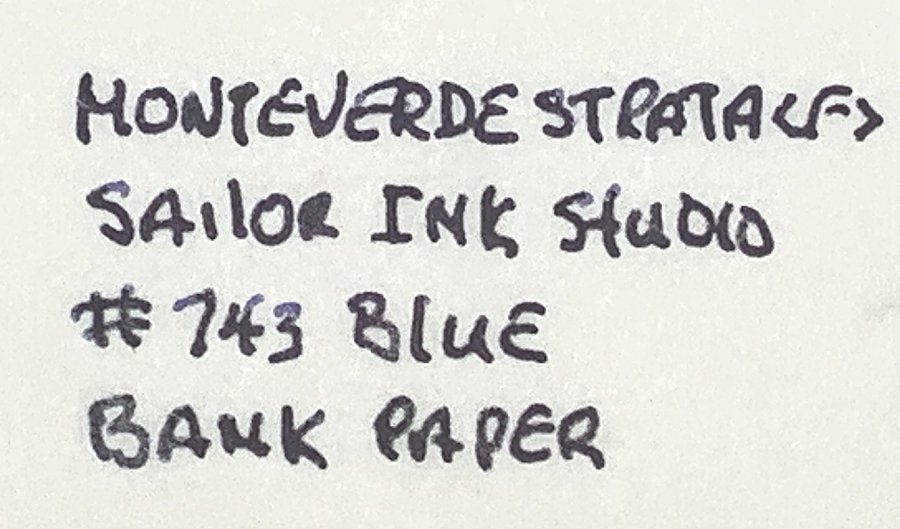 MONTEVERDE STRATA <F>
SAilOR INK StUDIO
# 743 BluE
BANK PAPER